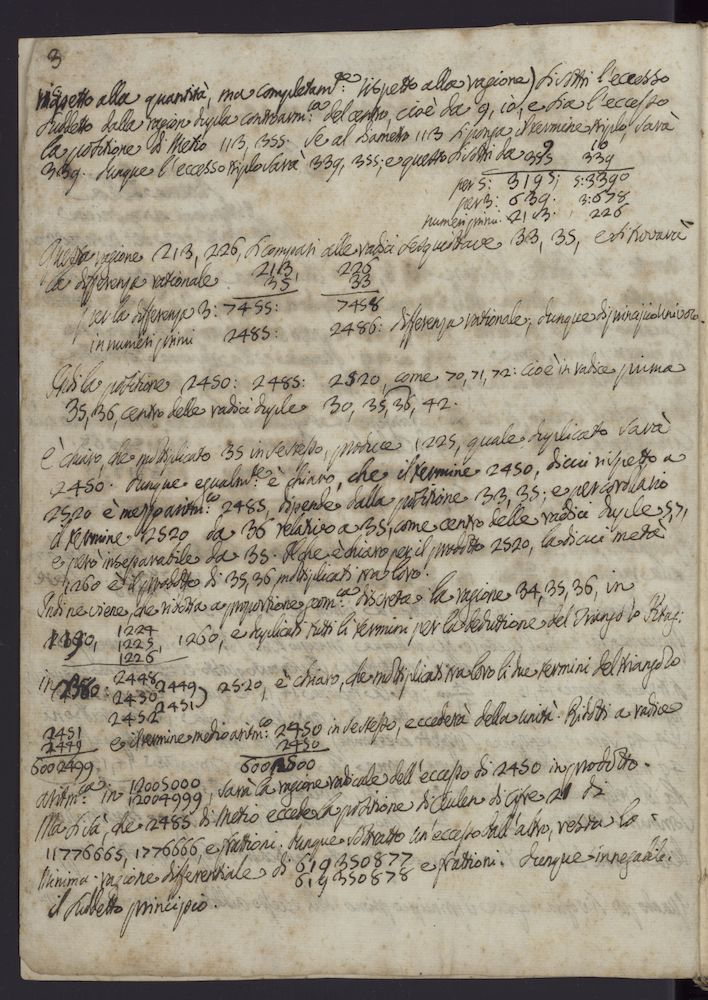 3
rispetto alla quantità, ma completam.te rispetto alla ragione) si sottri l'eccesso
suddetto dalla ragion dupla contrarm.ca del centro, cioè da 9, 10, e sia l'eccesso
la positione di Metio 113, 355. Se al Diametro 113 si ponga il termine triplo, sarà
339. dunque l'eccesso triplo sarà 339, 355; e questo si sottri da 9 10
355 339
per 5: 3195; 5:3390
per 3: 639. 3:678
numeri primi 213. 226
Questa ragione 213, 226, si compari alle radici sesquiottave 33, 35, e si trovarà
la differenza rationale 213 226
35 33
per la differenza 3: 7455: 7458
in numeri primi 2485: 2486: differenza rationale; dunque di principio univoco.
Sia la positione 2450: 2485: 2520, come 70, 71, 72: cioè in radice prima
35, 36, centro delle radici duple 30, 35, 36, 42.
È chiaro, che moltiplicato 35 in se stesso, produce 1225, quale duplicato sarà
2450. dunque egualm.te è chiaro, che il termine 2450, di cui rispetto a
2520 è mezzo aritm.co 2485, dipende dalla positione 33, 35; e per corolario
il termine 2520 da 36 relativo a 35, come centro delle radici duple 5, 7,
e però inseparabile da 35. Il che è chiaro per il prodotto 2520, la di cui metà
1260 è il prodotto di 35, 36 moltiplicati tra loro.
Indi ne viene, che ridotta a proportione geom.ca discreta la ragione 34, 35, 36, in
1190, 1224 1225 1226, 1260, e duplicati tutti li termini per la deduttione del Triangolo Pitag:
in 2380: 2448 2450 2452 2449 2451) 2520, è chiaro, che moltiplicati tra loro li due termini del triangolo
2451 2449 e il termine medio aritm.co 2450 in se stesso, eccederà della unità. Ridotti a radice
2450
6002499 6002500
aritm.ca in 12005000 12004999, sarà la ragione radicale dell'eccesso di 2450 in prodotto.
Ma si sà, che 2485 di Metio eccede la positione di Ceulen di cifre 21 di
11776665, 1776666, e frattioni. dunque sottratto un'eccesso dall'altro, resta la
minima ragione differentiale di 619350877 619350878 e frattioni. dunque innegabile
il suddetto principio.